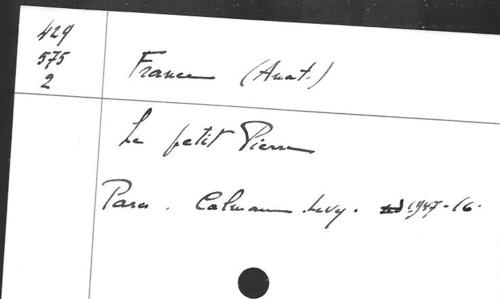 429
575
2
France (Anat.)
Le petit Pierre
Paris. Calmann Levy. 1947-16-